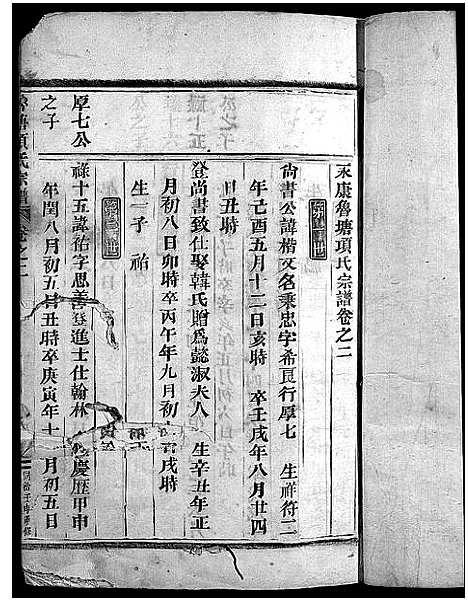 永康魯塘項氏宗譜卷之二
尚書公諱楷又名秉忠字希良行厚七 生祥符二
年己酉五月十二日亥時 卒壬戌年八月廿四
日丑時
登尚書致仕娶韓氏贈為懿淑夫人 生辛丑年正
月初八日卯時卒丙午年九月初 日戌時
生一子 祐
厚七公
之子
祿十五諱祐字思善登進士仕翰林 慶歷甲申
年閏八月初五日丑時卒庚寅年十 月初五日
魯塘項氏宗譜 卷之二